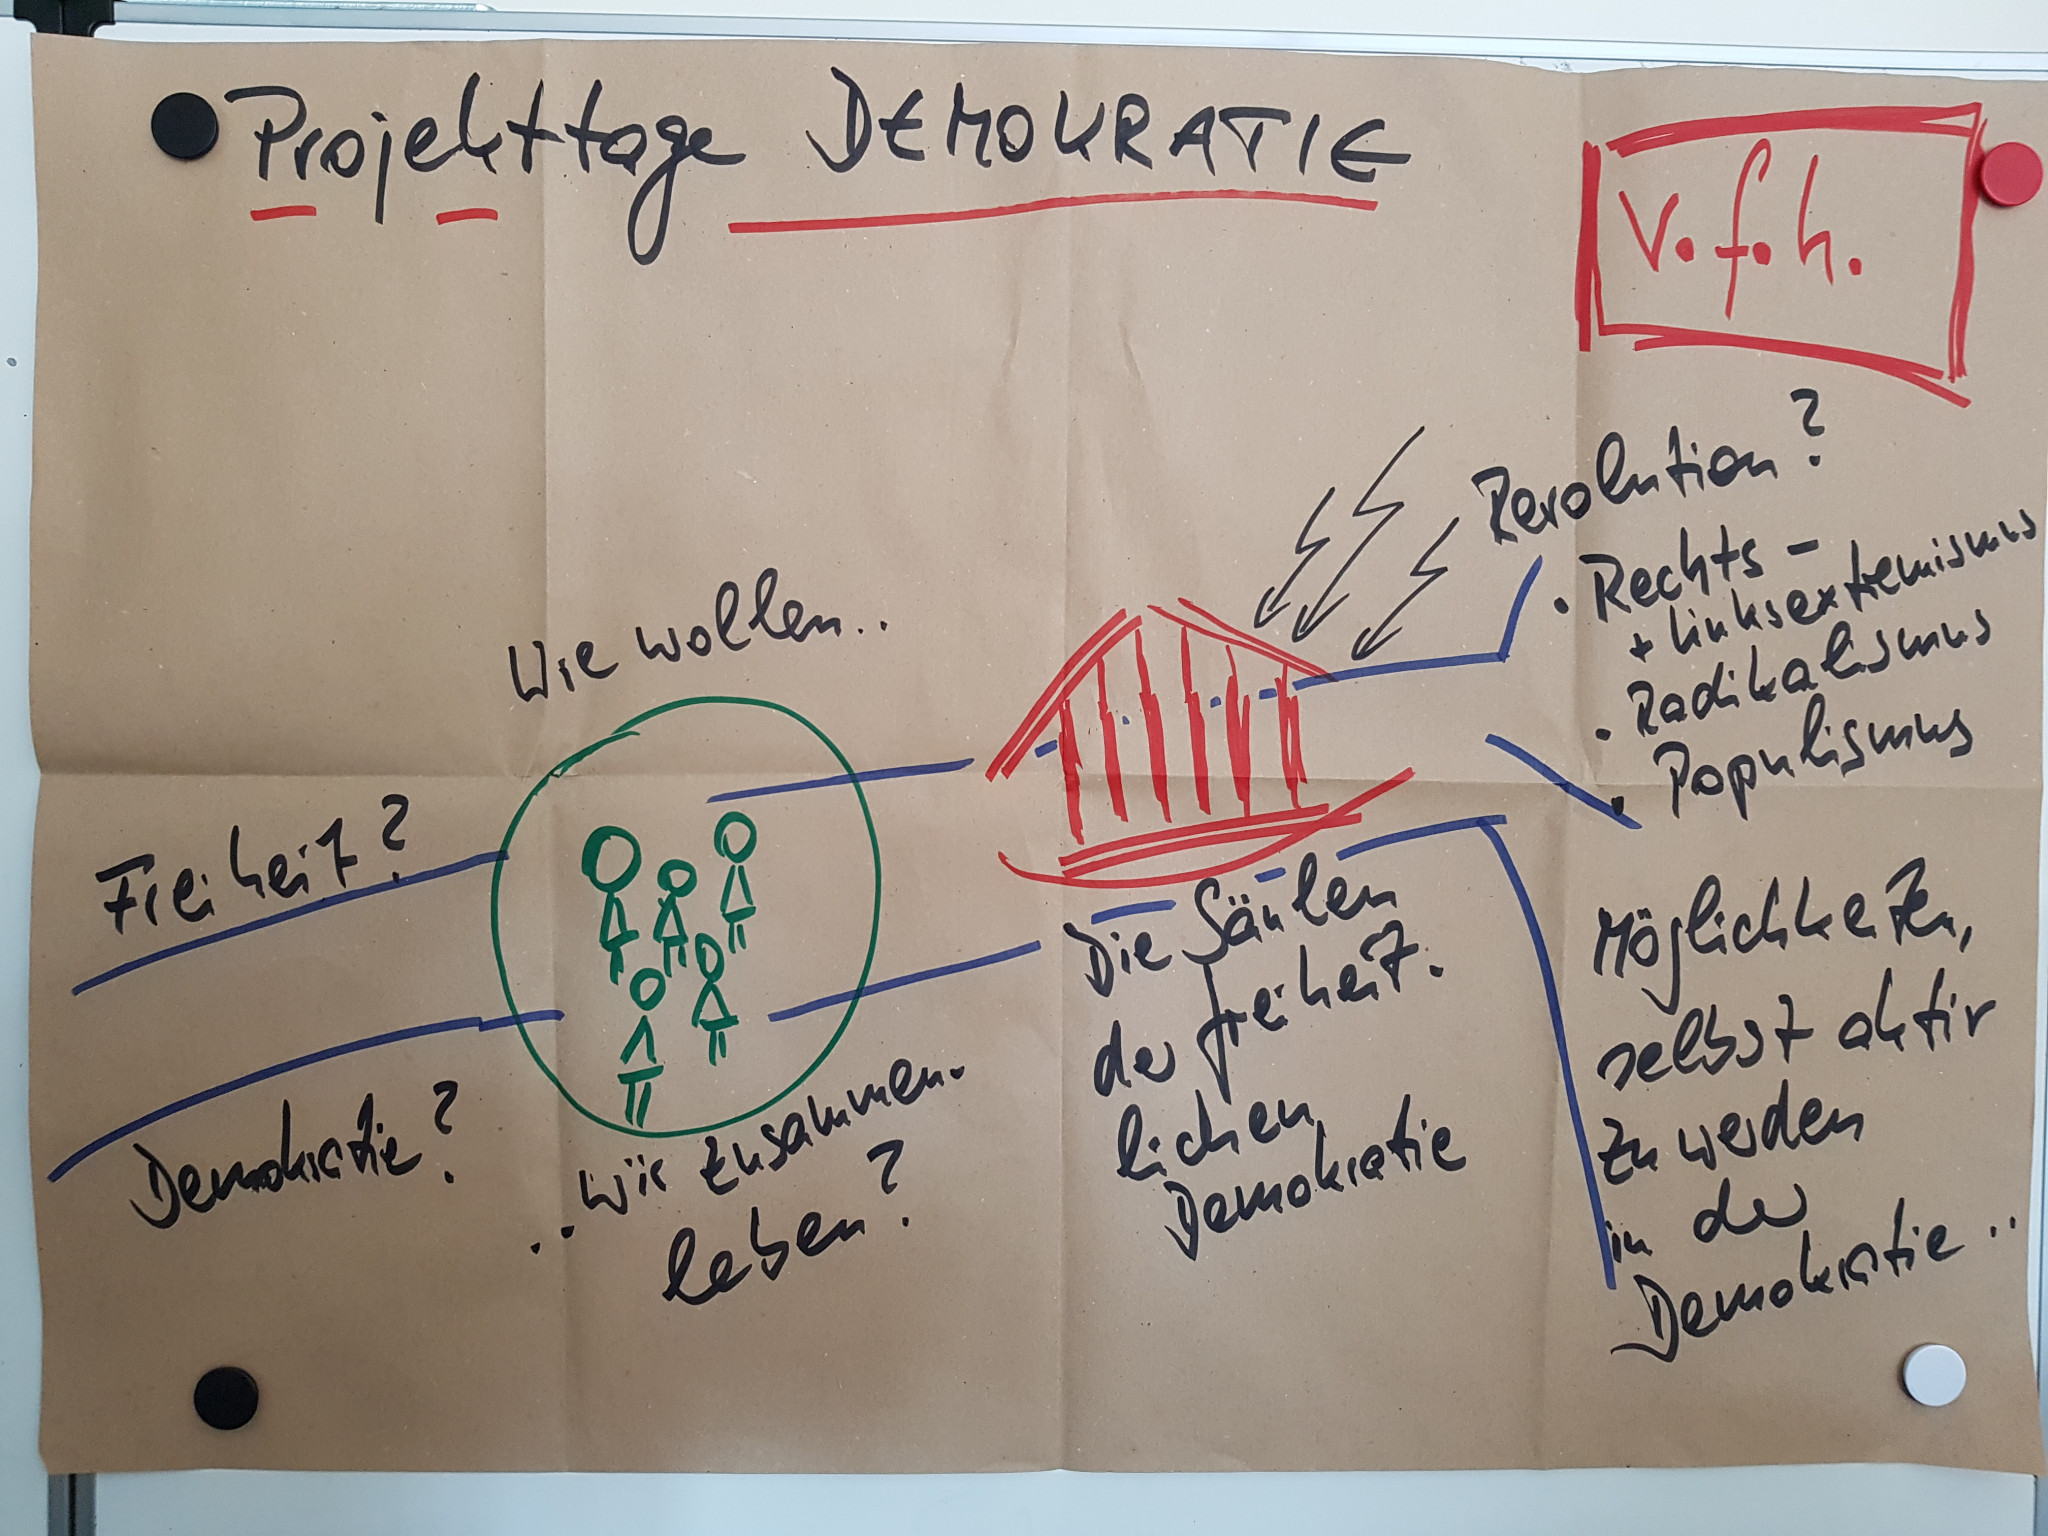 Projekttage DEMOKRATIE
v.f.h.
Freiheit?
Demokratie?
Wie wollen..
..wir zusammen.
leben?
Die Säulen
der freiheit.
lichen
Demokratie
Revolution?
• Rechts-
+ Linksextremismus
• Radikalismus
• Populismus
Möglichkeiten,
selbst aktiv
zu werden
in der
Demokratie..